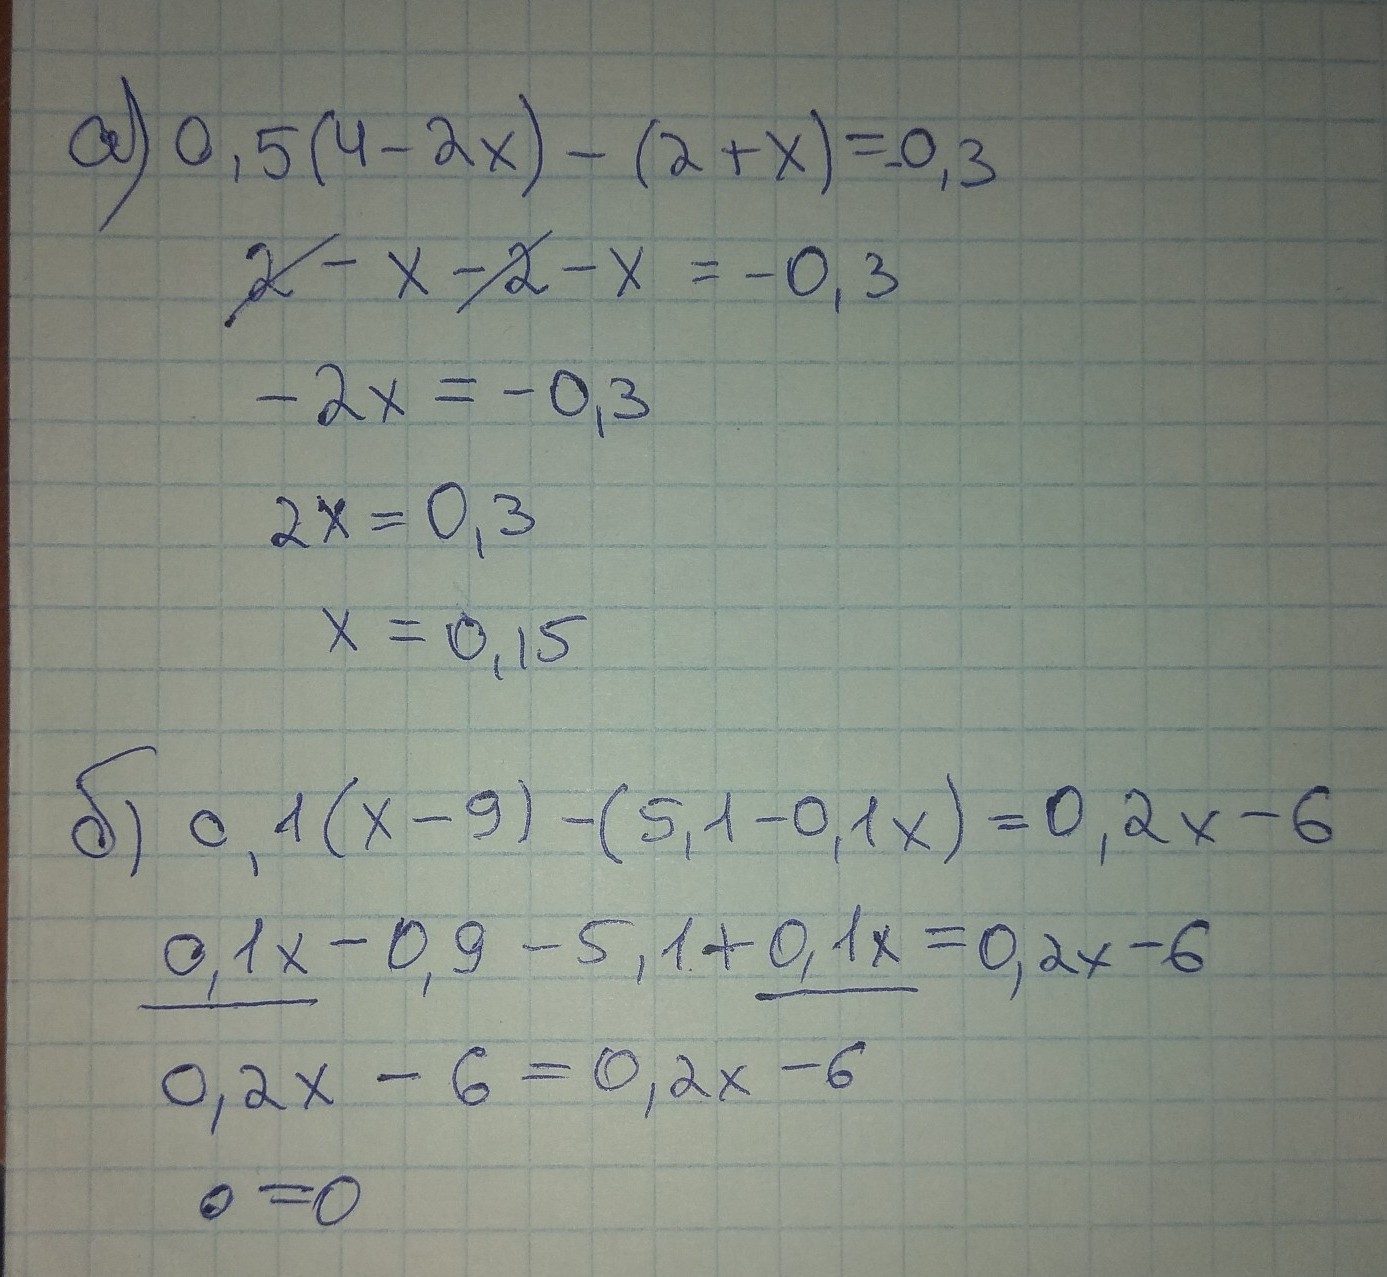 а) 0,5(4-2x) - (2+x)=-0,3
2 - x - 2 - x = -0,3
-2x = -0,3
2x = 0,3
x = 0,15
б) 0,1(x-9) - (5,1-0,1x) = 0,2x-6
0,1x - 0,9 - 5,1 + 0,1x = 0,2x - 6
0,2x - 6 = 0,2x - 6
0 = 0